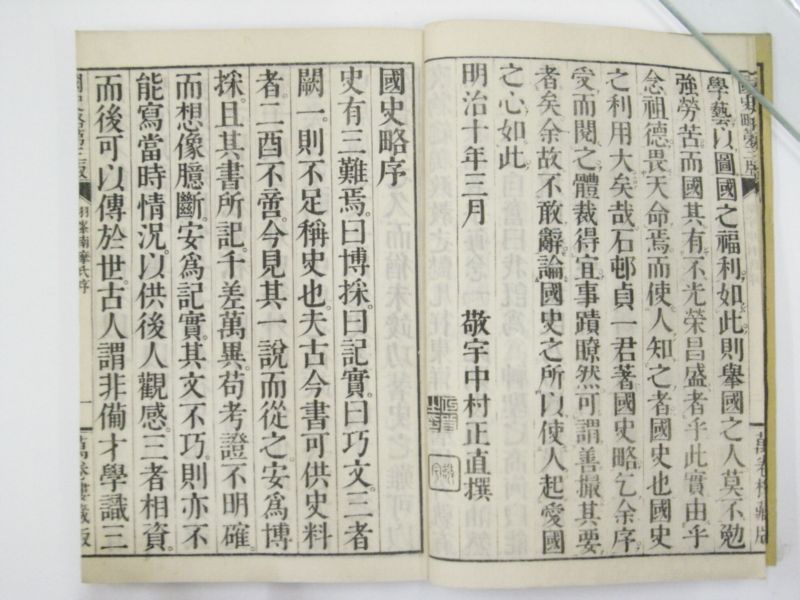 學藝以圖國之福利如此則擧國之人莫不勉
強勞苦而國其有不光榮昌盛者乎此實由乎
念祖德畏天命焉而使人知之者國史也國史
之利用大矣哉石邨貞一君著國史略乞余序
受而閱之體裁得宜事蹟瞭然可謂善撮其要
者矣余故不敢辭論國史之所以使人起愛國
之心如此
明治十年三月　敬宇中村正直撰
國史略序
史有三難焉。曰博採。曰記實。曰巧文。三者
闕一。則不足稱史也。夫古今書可供史料
者。二酉不啻。今見其一說而從之。安爲博
採。且其書所記。千差萬異。苟考證不明確。
而想像臆斷。安爲記實。其文不巧。則亦不
能寫當時情況。以供後人觀感。三者相資。
而後可以傳於世。古人謂非備才學識三
羽峯南摩氏序
一
萬卷樓藏版